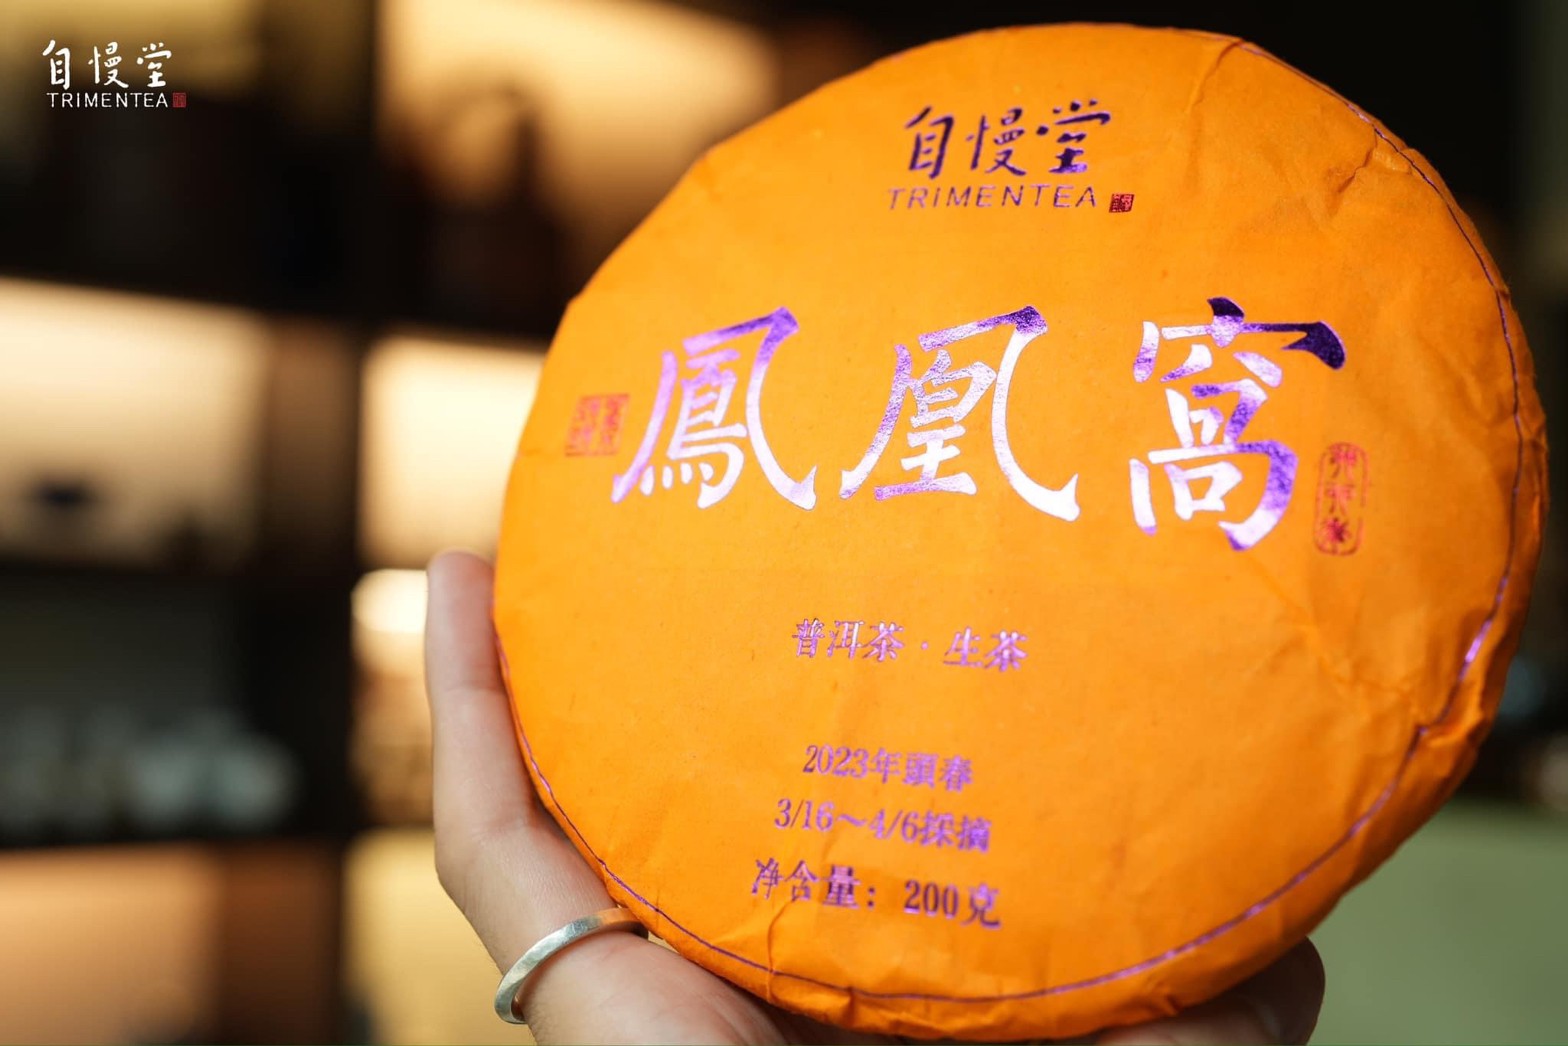 自慢堂
TRIMENTEA
自慢堂
TRIMENTEA
鳳凰窩
普洱茶·生茶
2023年頭春
3/16～4/6採摘
净含量：200克